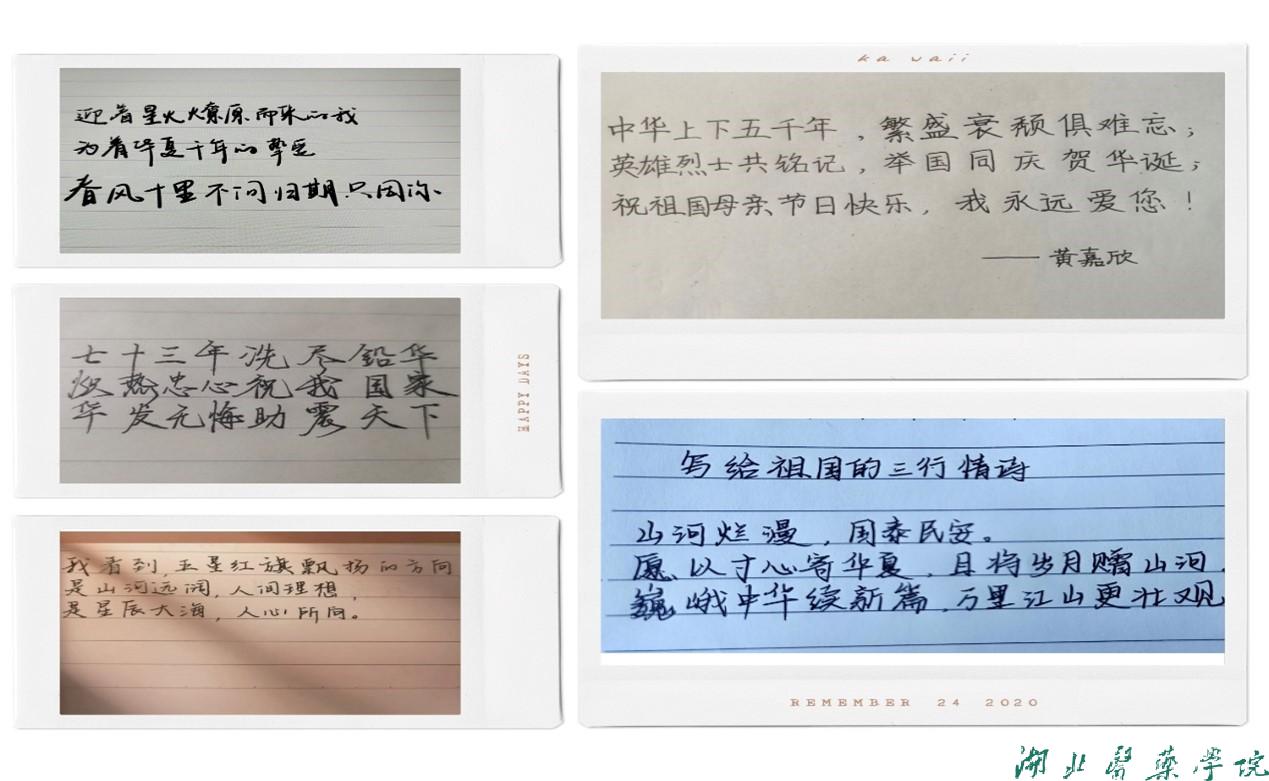 迎着星火燎原而来的我
为着华夏千年的挚爱
春风十里不问归期只因你、
七十三年洗尽铅华
炽热忠心祝我国家
华发无悔助震天下
HAPPY DAYS
我看到,五星红旗飘扬的方向
是山河远阔,人间理想,
是星辰大海,人心所向。
ka waii
中华上下五千年,繁盛衰颓俱难忘;
英雄烈士共铭记,举国同庆贺华诞;
祝祖国母亲节日快乐,我永远爱您!
——黄嘉欣
写给祖国的三行情诗
山河烂漫,国泰民安。
愿以寸心寄华夏,且将岁月赠山河,
巍峨中华续新篇,万里江山更壮观
REMEMBER 24 2020
湖北医药学院